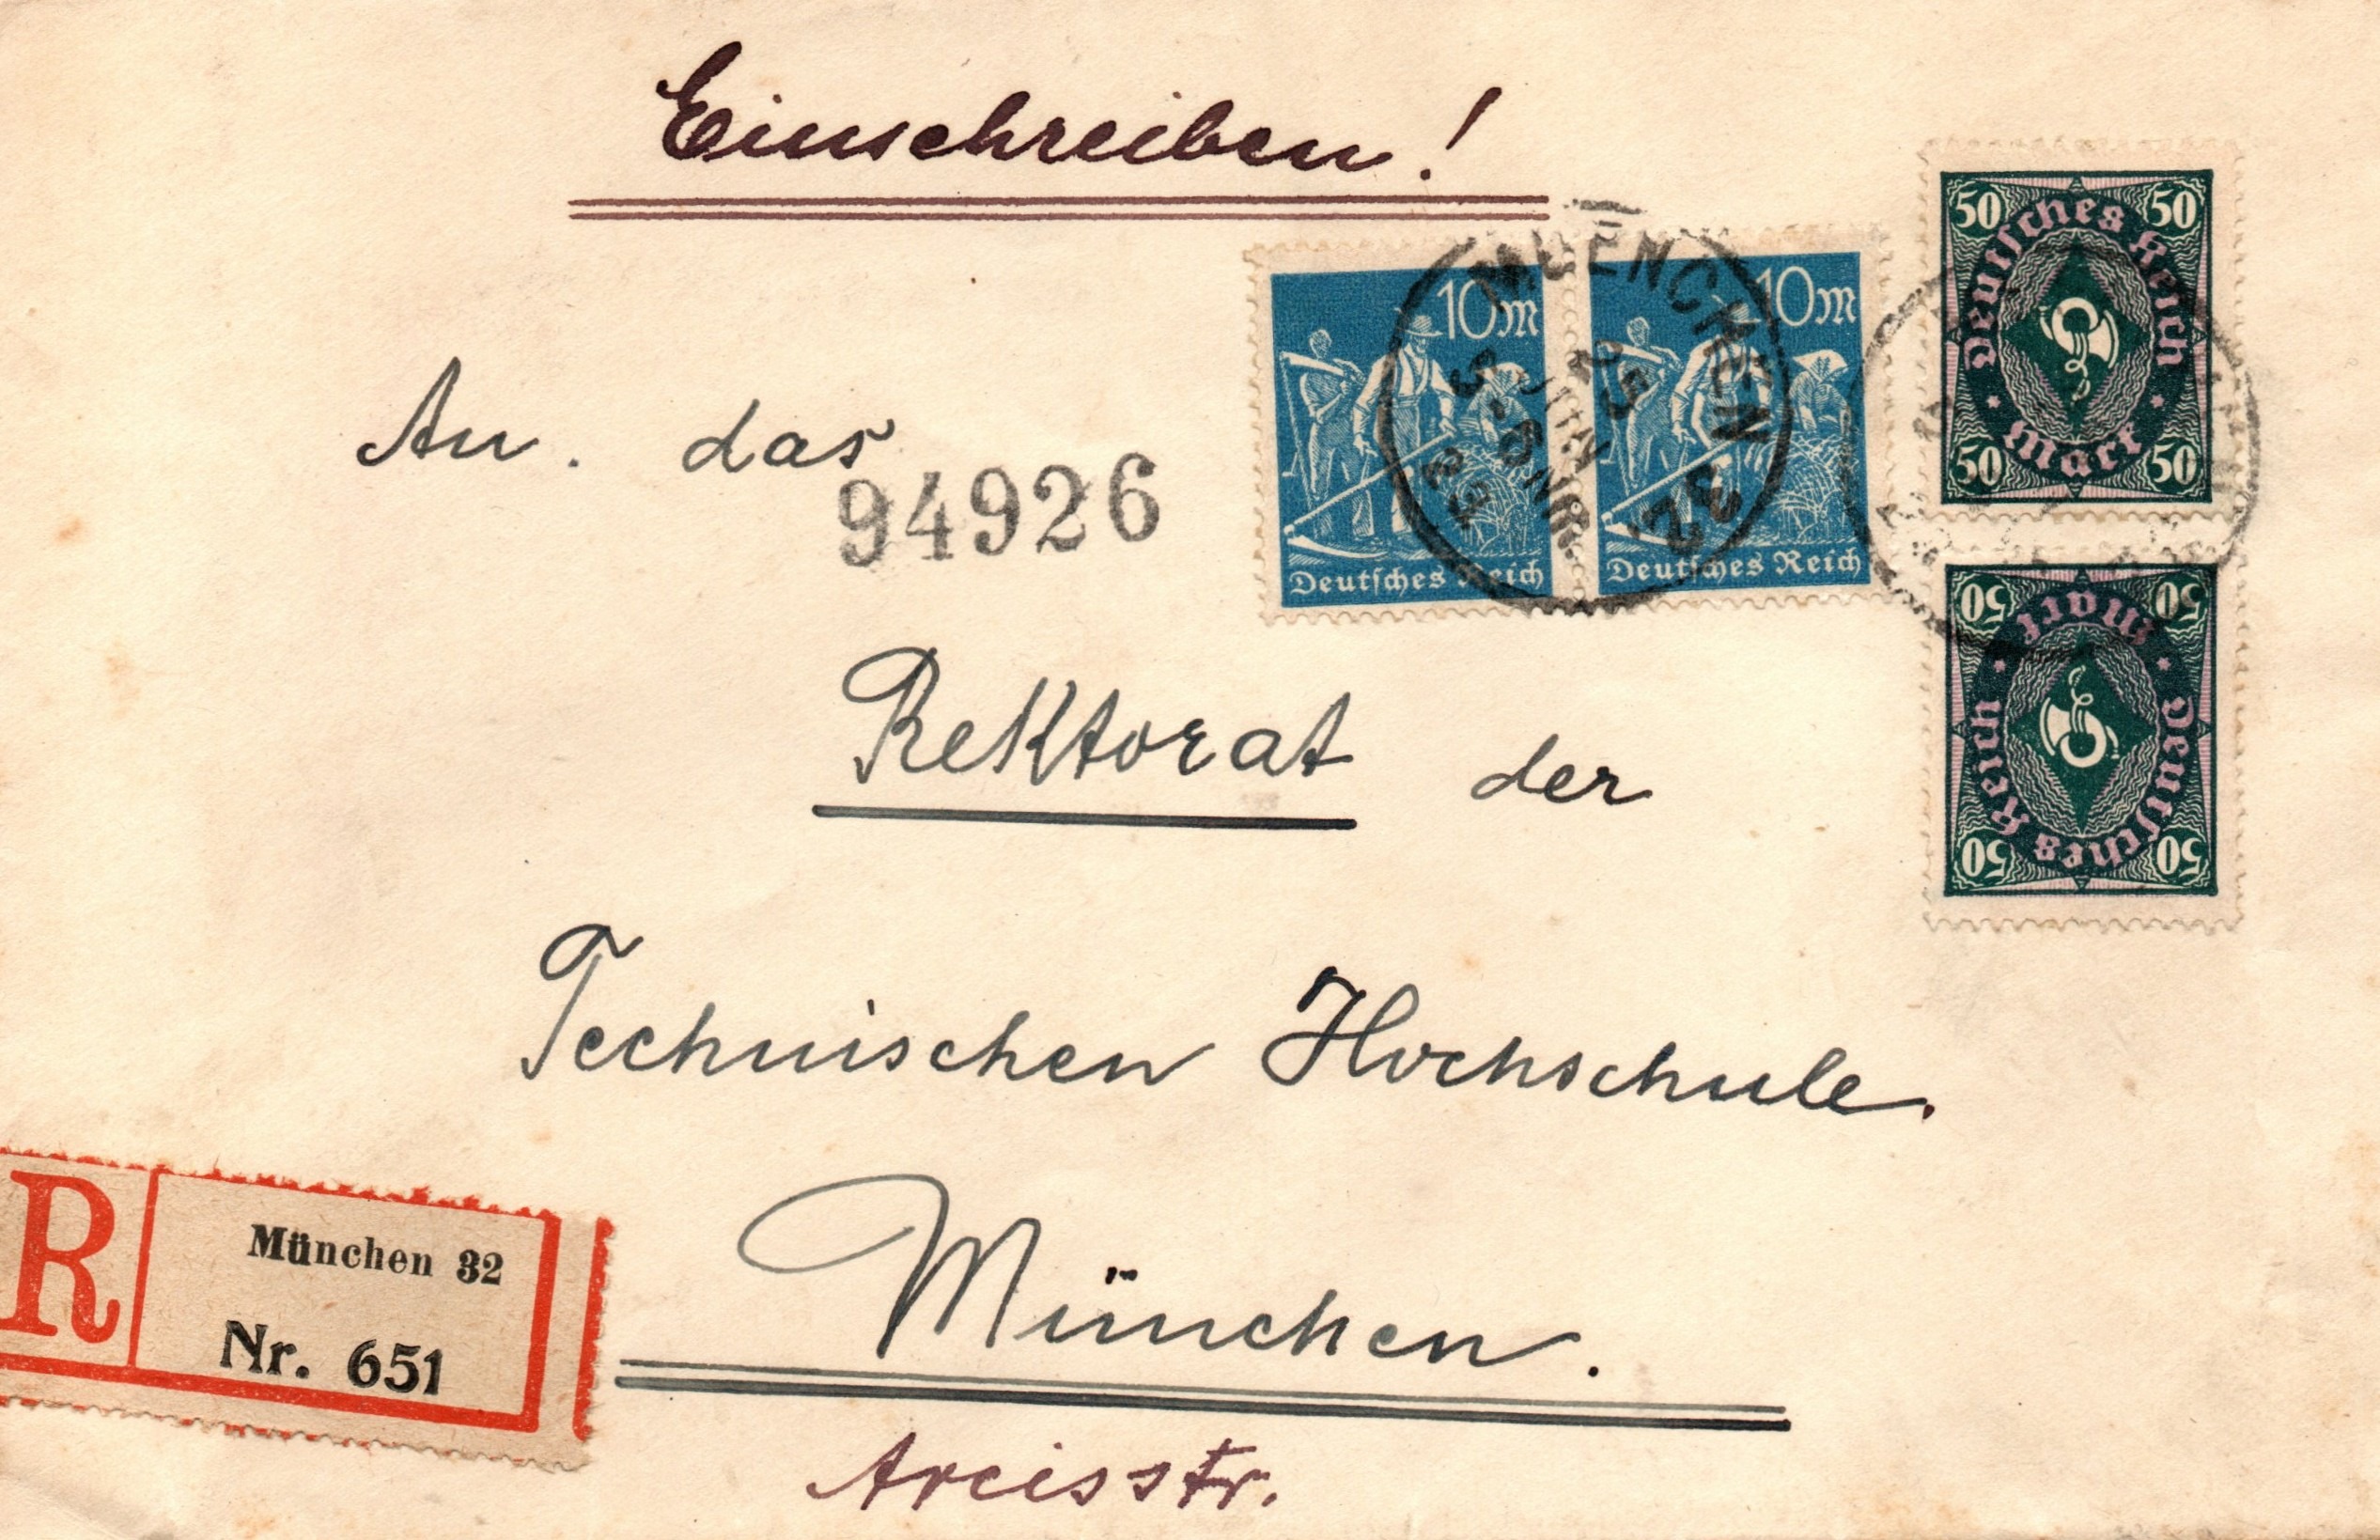 Einschreiben!
50 50
Deutsches Reich
Mark
50 50
10 M
Deutsches Reich
10 M
Deutsches Reich
MUENCHEN 32.
25 JUN
5-6 NM
23
An. das
94926
50 50
Deutsches Reich
Mark
50 50
Rektorat der
Technischen Hochschule.
R
München 32
Nr. 651
München.
Arcisstr.